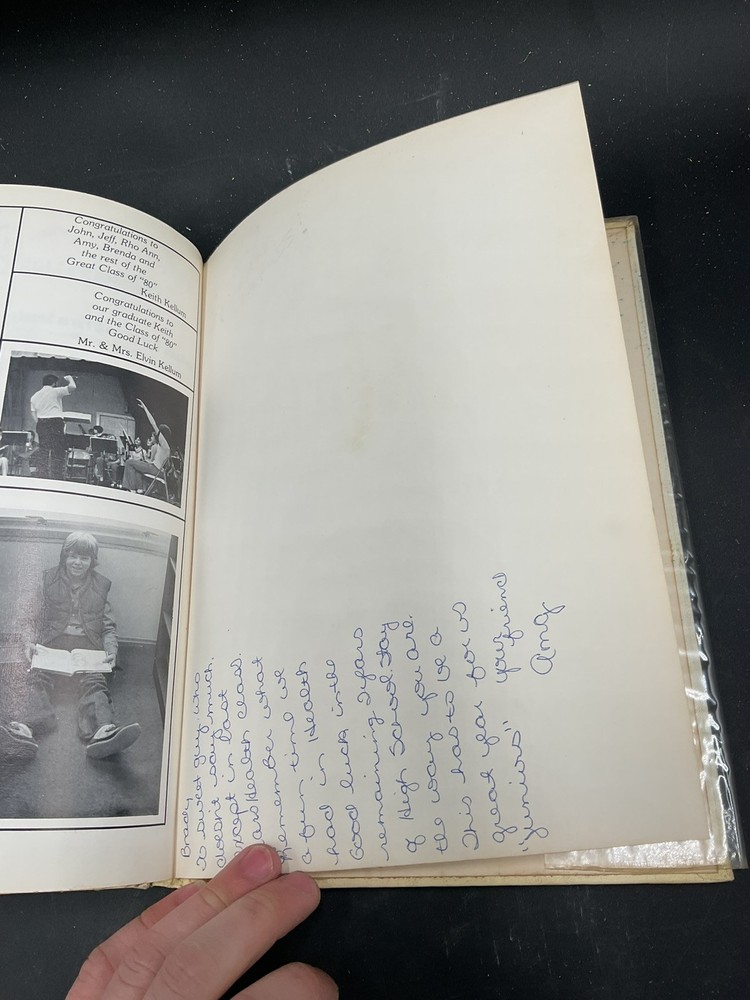 Congratulations to
John, Jeff, Rho Ann,
Amy, Brenda and
the rest of the
Great Class of "80"
Keith Kellum
Congratulations to
our graduate Keith
and the Class of "80"
Good Luck
Mr. & Mrs. Elvin Kellum
Brady,
A sweet guy who
doesn't say much.
except in last
years Health class.
Remember what
a fun time we
had in Health
Good luck in the
remaining 2 years
of High School. Stay
the way you are.
This has to be a
great year for us
"Juniors"
your friend
Amy